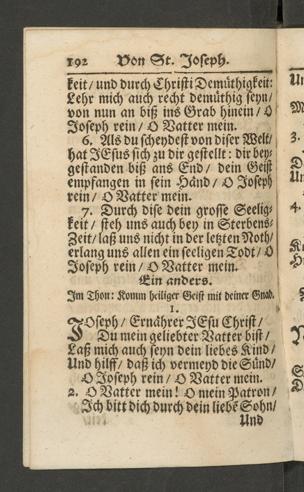 192 Von St. Joseph.
keit / und durch Christi Demüthigkeit:
Lehr mich auch recht demüthig seyn /
von nun an biß ins Grab hinein / O
Joseph rein / O Vatter mein.
6. Als du scheydest von diser Welt /
hat JEsus sich zu dir gestellt: dir bey-
gestanden biß ans End / dein Geist
empfangen in sein Händ / O Joseph
rein / O Vatter mein.
7. Durch dise dein grosse Seelig-
keit / steh uns auch bey in Sterbens-
Zeit / laß uns nicht in der letzten Noth /
erlang uns allen ein seeligen Todt / O
Joseph rein / O Vatter mein.
Ein anders.
Im Thon: Komm heiliger Geist mit deiner Gnad.
1.
JOseph / Ernährer JEsu Christ /
Du mein geliebter Vatter bist /
Laß mich auch seyn dein liebes Kind /
Und hilff / daß ich vermeyd die Sünd /
O Joseph rein / O Vatter mein.
2. O Vatter mein! O mein Patron /
Ich bitt dich durch dein liebē Sohn /
Und